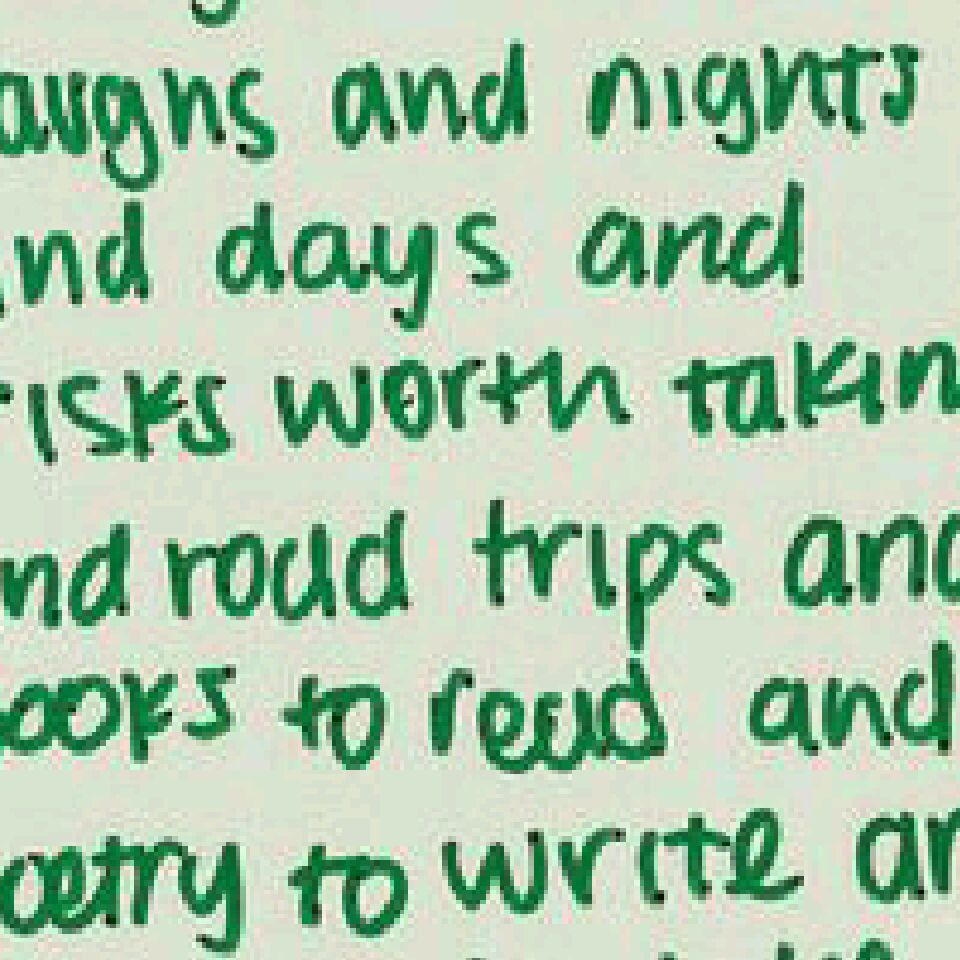 aughs and nights
nd days and
risks worth takin
nd road trips and
ooks to read and
oetry to write an